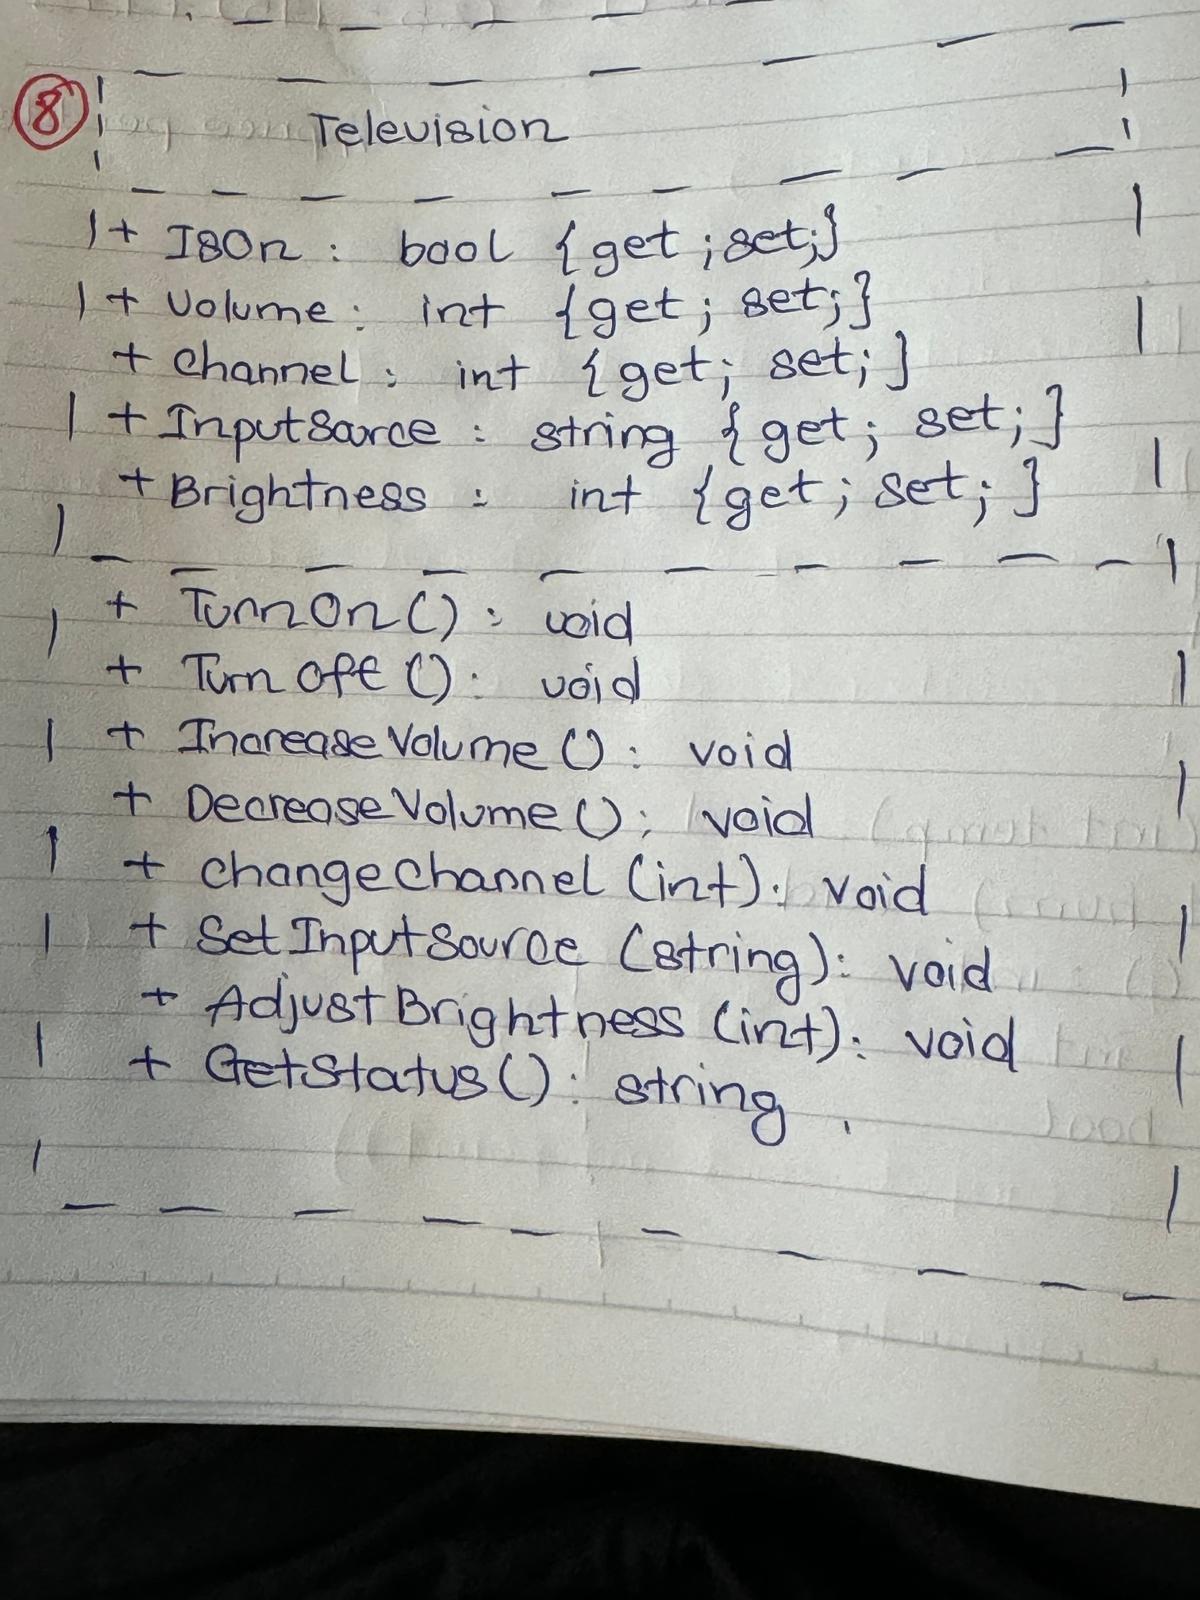 8
Television
+ IsOn : bool {get ; set;}
+ Volume : int {get ; set;}
+ Channel : int {get; set;}
+ InputSource : string {get; set;}
+ Brightness : int {get ; set; }
+ TurnOn() : void
+ TurnOff() : void
+ IncreaseVolume() : void
+ DecreaseVolume() : void
+ changechannel (int) : void
+ SetInputSource (string) : void
+ AdjustBrightness (int) : void
+ GetStatus() : string